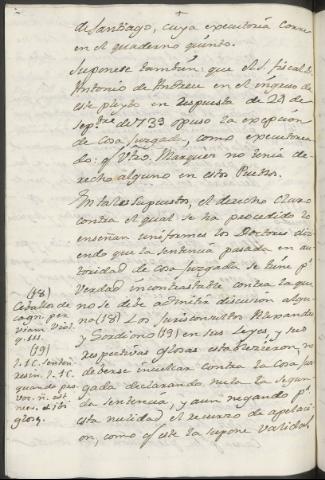 de Santiago, cuya executoria corre
en el quaderno quinto.
Suponese tambien que el S.r fiscal D.
Antonio de Andreu en el ingreso de
este pleyto en respuesta de 24 de
Sep.bre de 733 opuso la excepcion
de cosa Juzgada, como executoria
do: q.e Vtro. Marques no tenia de-
recho alguno en estos Puertos.
En tales Supuestos, el derecho claro
contra el qual se ha procedido lo
enseñan uniformes los Doctores di-
ciendo que la sentencia pasada en au-
toridad de cosa Juzgada se tiene p.r
verdad incontrastable contra la que
no se debe admitir discusion algu-
na (18) Los Jurisconsultos
y Gordiano (19) en sus Leyes, y sus
respectivas glosas establecieron, no
deberse inculcar contra la Cosa Juz-
gada declarando nula la segun-
da sentencia, y aun negando p.r
esta nulidad el recurso de apelaci-
on, como q.e este la supone valida,
(18)
Ceballos de
cogn. per
viam Viol.
q. 111.
(19)
l. 1. C. senten.
rescin. l. 1. C.
quando pro
vor. ñ. est
neces. et ibi
glos.